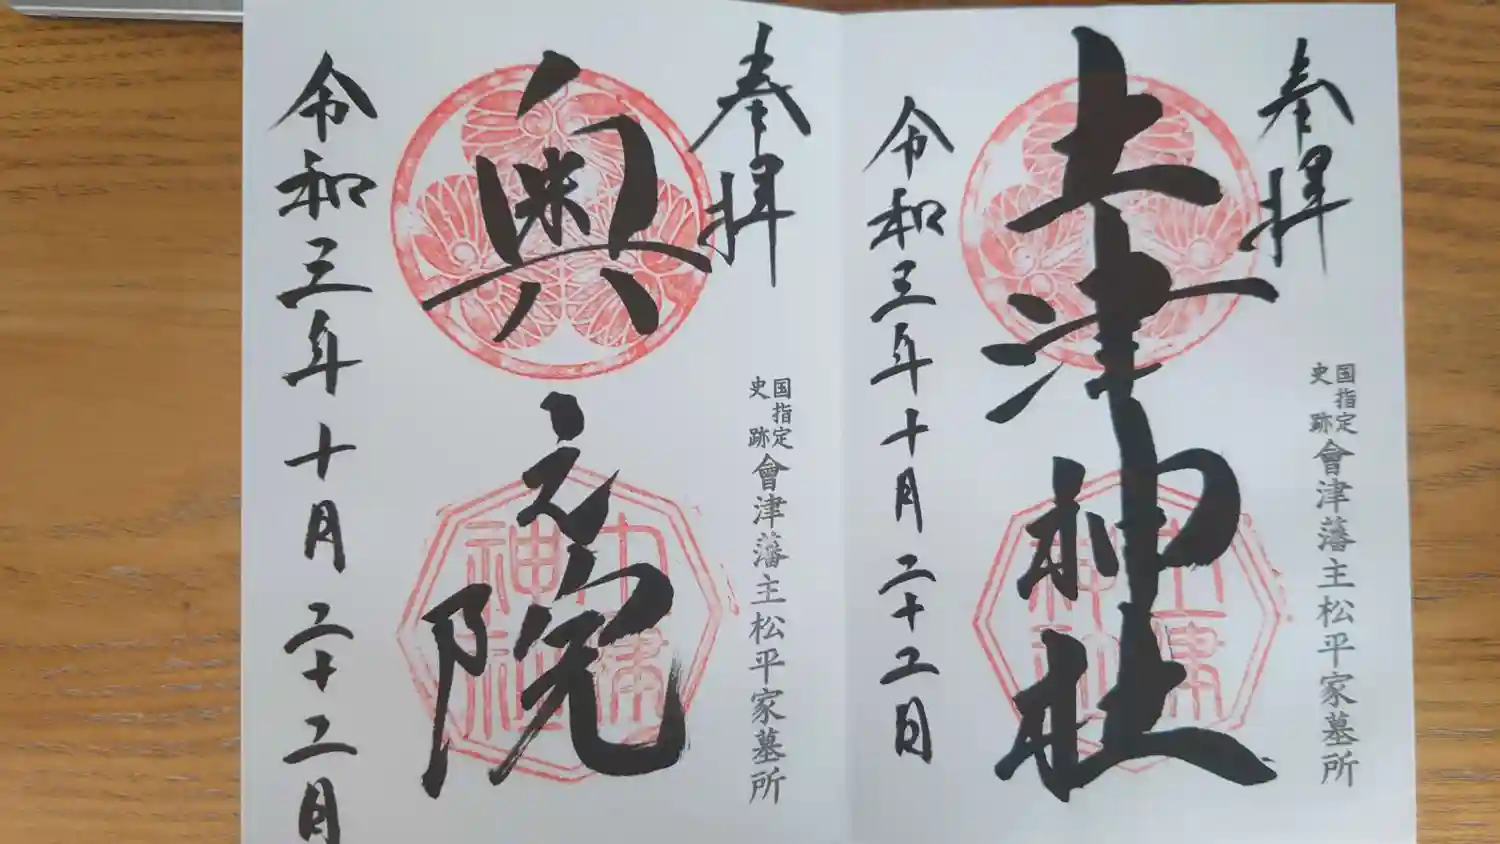 奉拝
土津神社
令和三年十月二十二日
国指定
史跡
會津藩主松平家墓所
土津神社
奉拝
奥之院
令和三年十月二十二日
国指定
史跡
會津藩主松平家墓所
土津神社